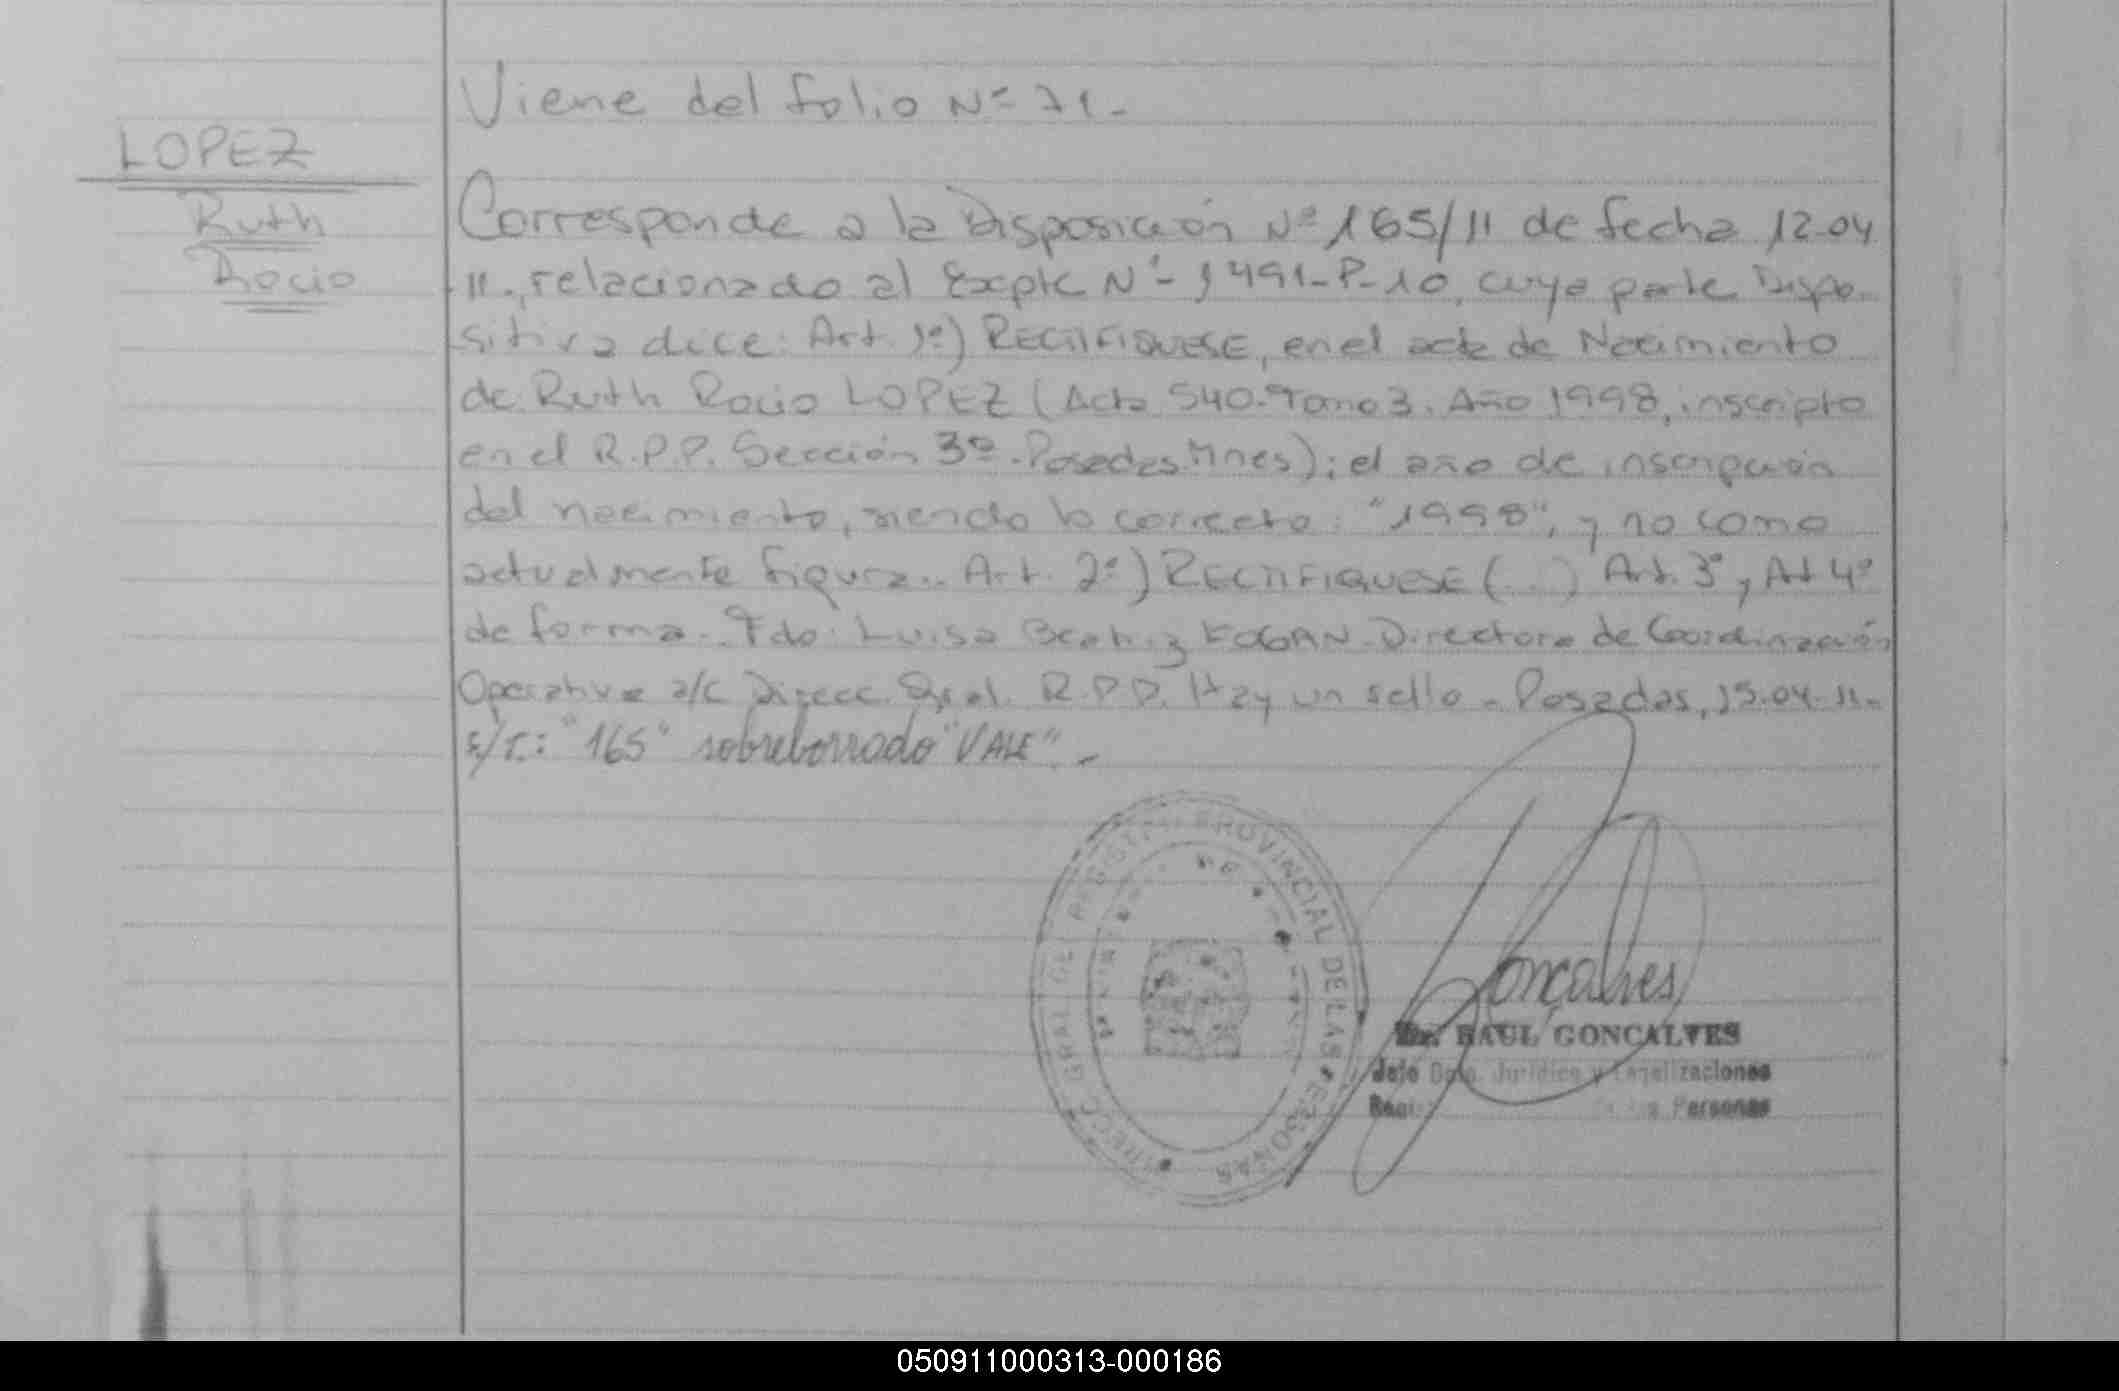 Viene del folio Nº 71-
LOPEZ
Ruth
Rocio
Corresponde a la Disposición Nº 165/11 de fecha 12-04
11., relacionado al Expte Nº- 1491-P-10, cuya parte Dispo-
sitiva dice: Art. 1º) RECTIFIQUESE, en el acta de Nacimiento
de Ruth Rocio LOPEZ (Acta 540-Tomo 3. Año 1998, inscripto
en el R.P.P. Sección 3º-Posadas.Mnes); el año de inscripción
del nacimiento, siendo lo correcto: "1998", y no como
actualmente figura.. Art. 2º) RECTIFIQUESE (...) Art. 3º y Art 4º
de forma.. Fdo: Luisa Beatriz Directora de Coordinación
Operativa a/c Direcc. Gral. R.P.P. Hay un sello - Posadas, 15-04-11-
s/r.: "165" sobreborrado "VALE".-
DIRECC. GRAL. DEL REGISTRO PROVINCIAL DE LAS PERSONAS
Gonçalves
Dr. RAUL GONCALVES
Jefe Dpto. Jurídico y Legalizaciones
Personas
050911000313-000186